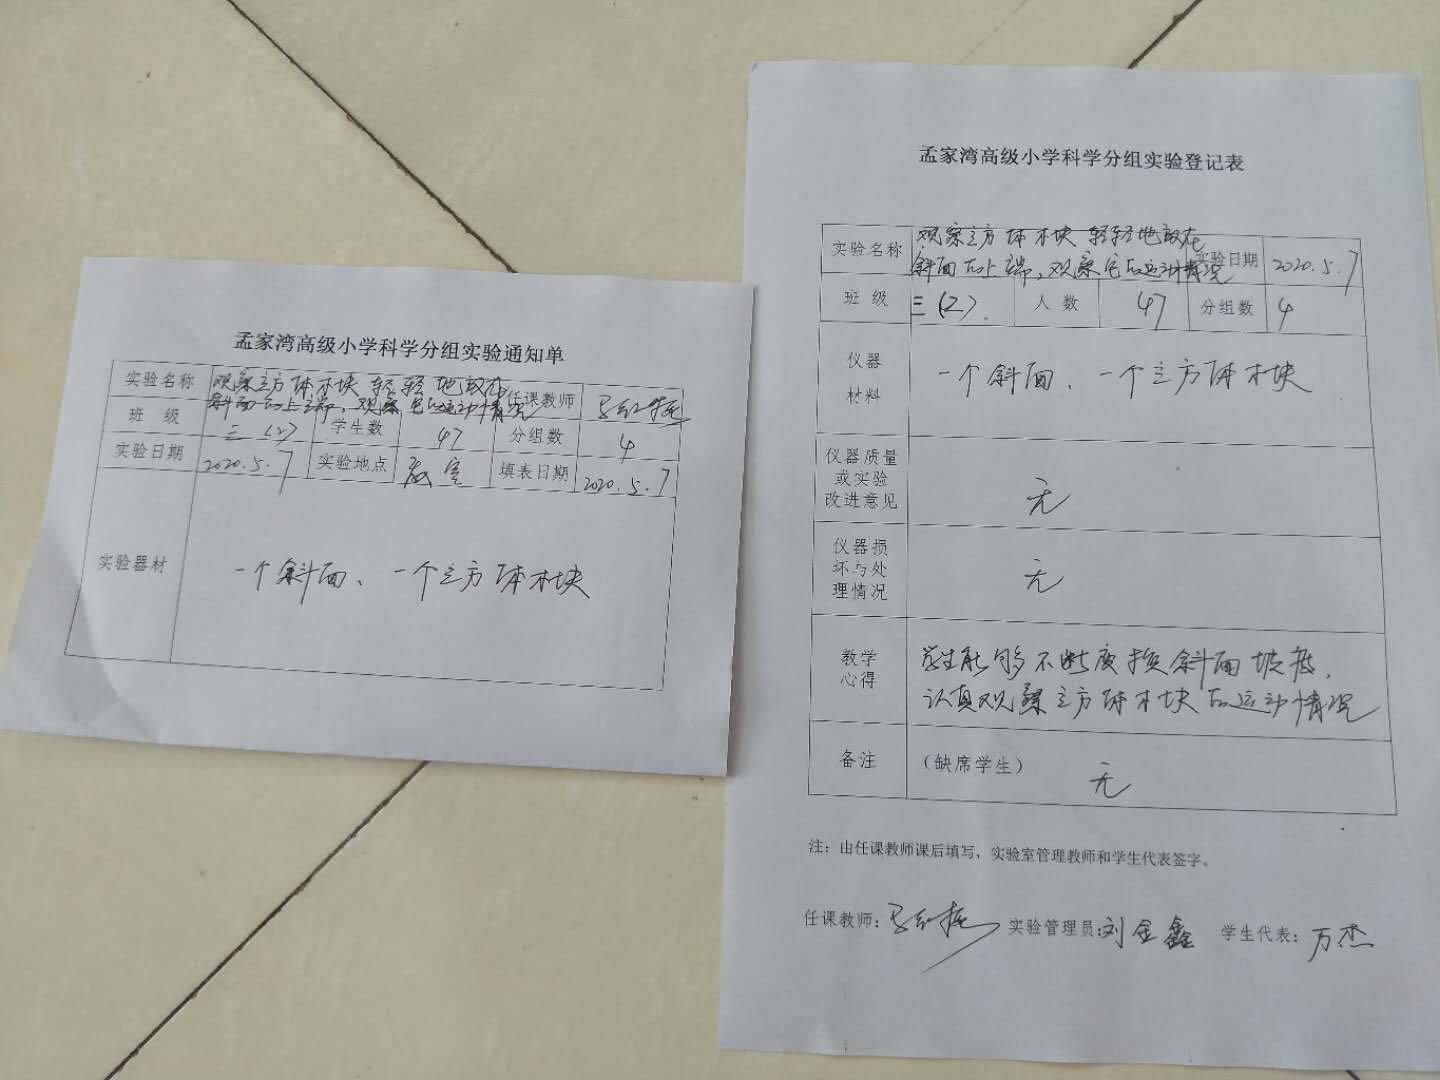 孟家湾高级小学科学分组实验通知单
实验名称 观察立方体木块轻轻地放在 任课教师
斜面的上端,观察它的运动情况
班 级 三(2) 学生数 47 分组数 4
实验日期 2020.5.7 实验地点 教室 填表日期 2020.5.7
实验器材 一个斜面、一个立方体木块
孟家湾高级小学科学分组实验登记表
实验名称 观察立方体木块轻轻地放在 实验日期 2020.5.7
斜面的上端,观察它的运动情况
班 级 三(2). 人 数 47 分组数 4
仪器
材料
一个斜面、一个立方体木块
仪器质量
或实验
改进意见
无
仪器损
坏与处
理情况
无
教学
心得
学生能够不断变换斜面坡度,
认真观察立方体木块的运动情况
备注 (缺席学生) 无
注:由任课教师课后填写,实验室管理教师和学生代表签字。
任课教师: 实验管理员:刘金鑫 学生代表:万杰